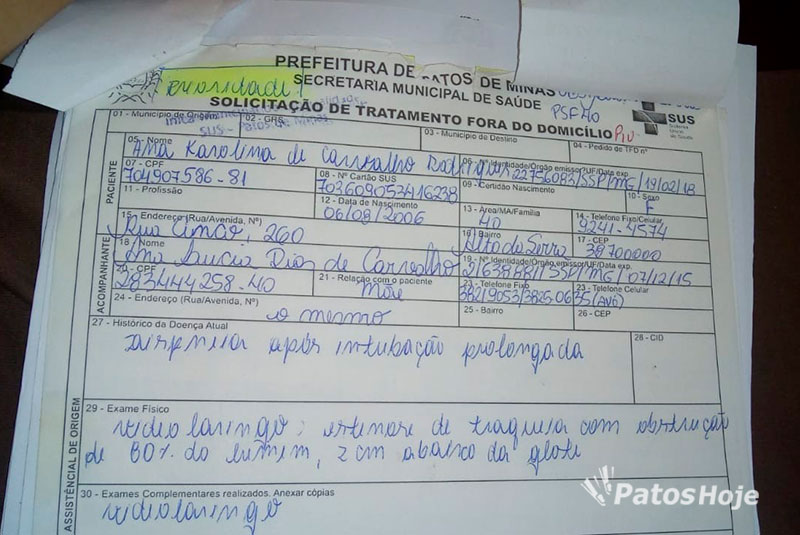 PREFEITURA DE PATOS DE MINAS
SECRETARIA MUNICIPAL DE SAÚDE
SOLICITAÇÃO DE TRATAMENTO FORA DO DOMICÍLIO
PSF 40
SUS
Sistema Único de Saúde
01 - Município de Origem 02 - GRS 03 - Município de Destino 04 - Pedido de TFD nº
SUS - Patos de Minas
PACIENTE
05 - Nome 06 - Nº Identidade/Órgão emissor/UF/Data exp.
Ana Karolina de Carvalho Rodrigues 22756083/SSP/MG/19/02/18
07 - CPF 08 - Nº Cartão SUS 09 - Certidão Nascimento 10 - Sexo
704907586-81 702609053416238 F
11 - Profissão 12 - Data de Nascimento 13 - Área/MA/Família 14 - Telefone Fixo/Celular
06/08/2006 40 9241-4574
15 - Endereço (Rua/Avenida, Nº) 16 - Bairro 17 - CEP
260 Alto da Serra 38700000
ACOMPANHANTE
18 - Nome 19 - Nº Identidade/Órgão emissor/UF/Data exp.
Ana Lucia Dias de Carvalho SSP/MG/07/12/15
20 - CPF 21 - Relação com o paciente 22 - Telefone Fixo 23 - Telefone Celular
283444258-40 Mãe 38219053/3825.0635 (Avó)
24 - Endereço (Rua/Avenida, Nº) 25 - Bairro 26 - CEP
o mesmo
ASSISTÊNCIAL DE ORIGEM
27 - Histórico da Doença Atual 28 - CID
Dispneia após intubação prolongada
29 - Exame Físico
videolaringo: estenose de traqueia com obstrução
de 60% do lumem, 2 cm abaixo da glote
30 - Exames Complementares realizados. Anexar cópias
videolaringo
PatosHoje